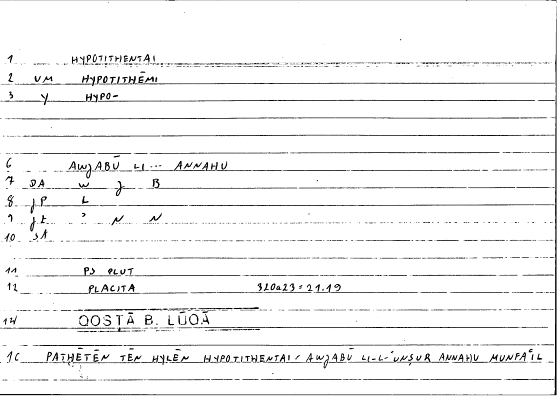 1 HYPOTITHENTAI
2 UM HYPOTITHĒMI
3 Y HYPO-
6 AWJABŪ LI--- ANNAHU
7 DA W J B
8 JP L
9 JE ' N N
10 SA
11 PS PLUT
12 PLACITA 320a23=21.19
14 QOSṬĀ B. LŪQĀ
16 PATHĒTĒN TĒN HYLĒN HYPOTITHENTAI / AWJABŪ LI-L-ʿUNṢUR ANNAHU MUNFAʿIL